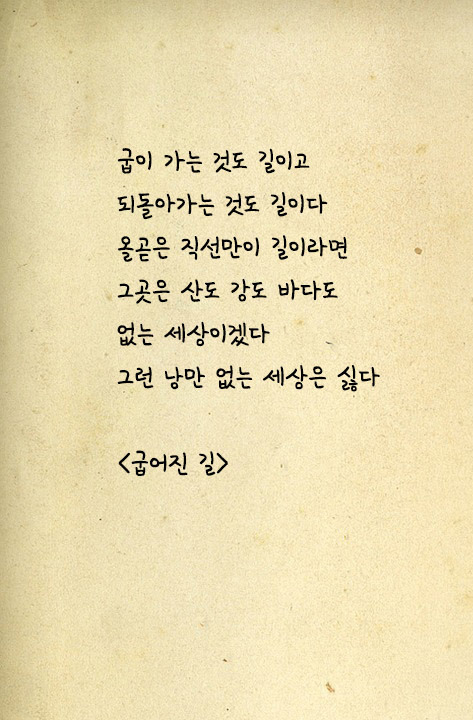 굽이 가는 것도 길이고
되돌아가는 것도 길이다
올곧은 직선만이 길이라면
그곳은 산도 강도 바다도
없는 세상이겠다
그런 낭만 없는 세상은 싫다
<굽어진 길>